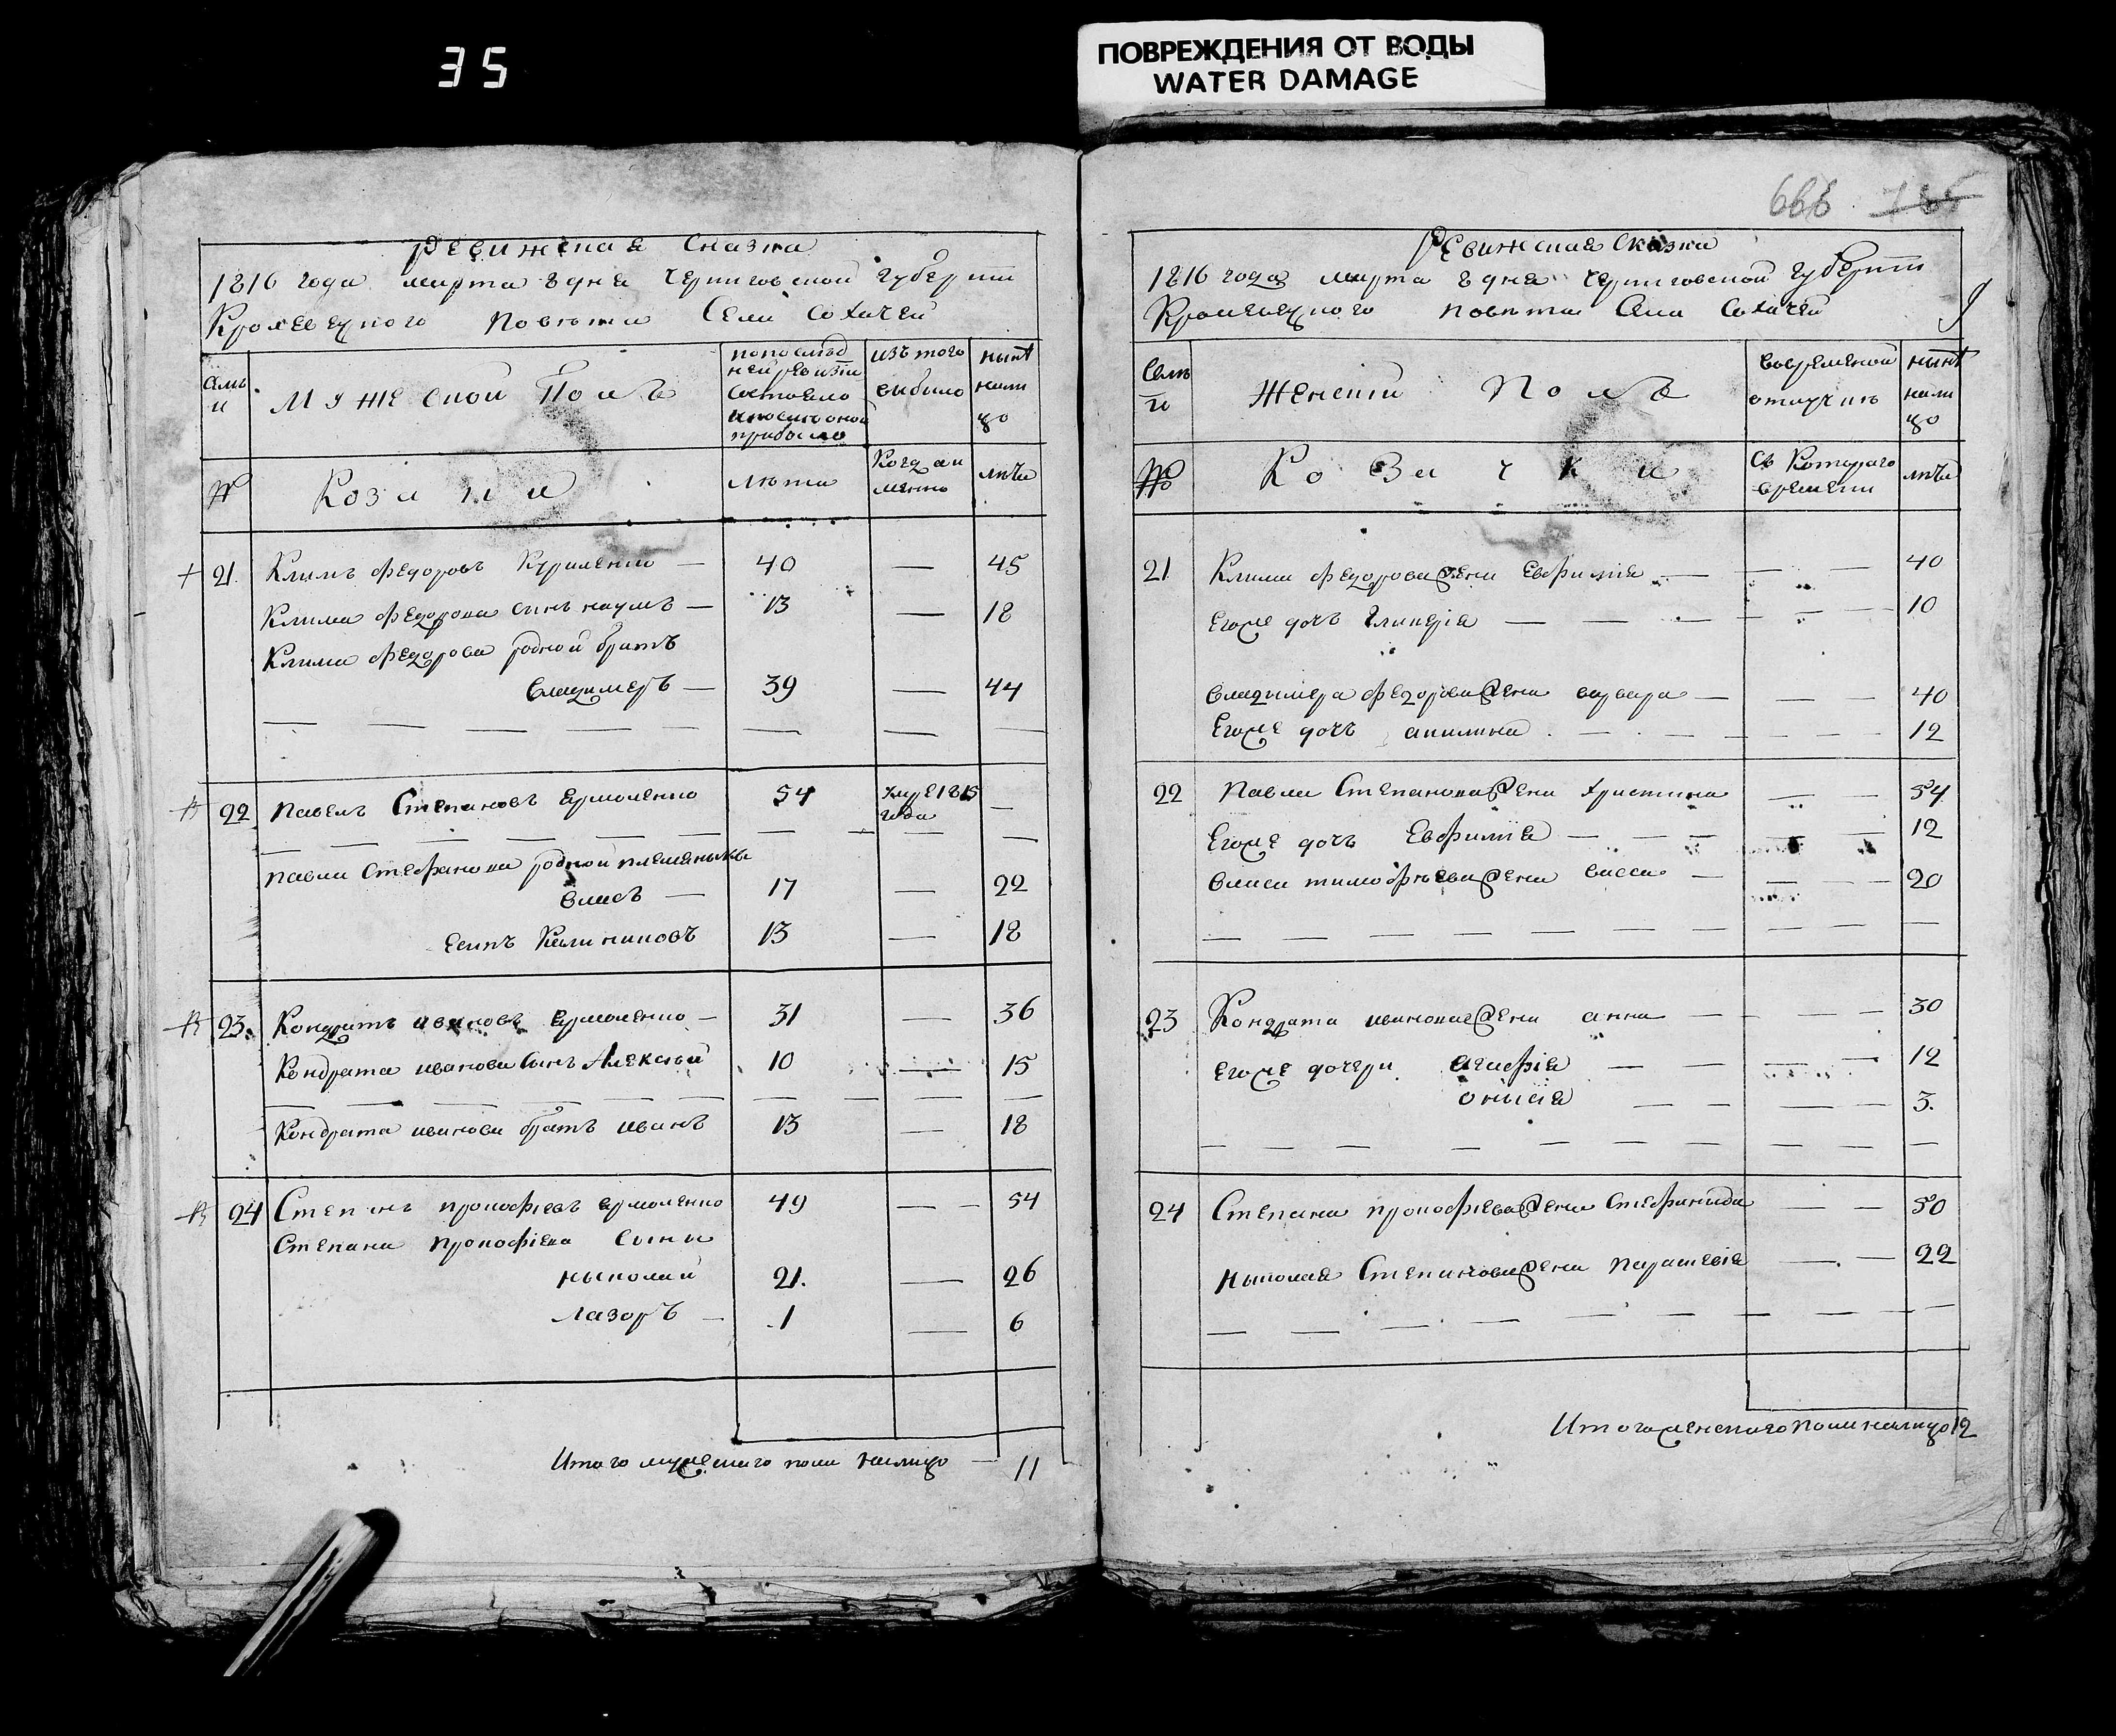 35
ПОВРЕЖДЕНИЯ ОТ ВОДЫ
WATER DAMAGE
Ревижская Сказка
1816 года марта 8 дня Черниговской губернии
Кролевецкого Повета Села Сохачей
Семьи
Мужеской Полъ
по последней ревизии состояло и после оной прибыло
изъ того выбило
ныне налицо
№
Козаки
лета
Когда имянно
лета
21. Климъ Федоровъ Куриленко — 40 — 45
Клима Федорова синъ наумъ — 13 — 18
Клима Федорова родной братъ
Владимеръ — 39 — 44
22 Павелъ Степановъ Ермоленко 54 умре 1815 года —
Павла Стефанова родной племяникъ
Власъ — 17 — 22
Есипъ Калиниковъ 13 — 18
23. Кондратъ ивановъ Ермоленко — 31 — 36
Кондрата иванова Сынъ Алексей 10 — 15
Кондрата иванова братъ иванъ 13 — 18
24 Степанъ прокофіевъ ермоленко 49 — 54
Степана Прокофіева Сыни
ныколай 21. — 26
Лазоръ — 1 — 6
Итого мужеского пола налицо — 11
666 765
Ревижская Сказка
1816 года марта 8 дня Черниговской губернии
Кролевецкого повета Села Сохачей
9
Семьи
Женской Полъ
во временной отлучке
ныне налицо
№
Козачки
Съ Которого времени
лета
21 Клима Федорова жена Евфимия — — — 40
Его же дочъ Гликерія — — — 10
Владимера Федорова жена варвара — — — 40
Его же дочъ акилина — — — 12
22 Павла Степанова жена Христина — — 54
Его же дочъ Евфимія — — — 12
Власа тимофеева жена васса — — — 20
23 Кондрата иванова жена анна — — — 30
Его же дочери агафія — — — 12
онисія — — — 3.
24 Степана прокофіева жена Стефанида — — 50
Ныколая Степанова жена Параскевія — — 22
Итого женского пола налицо 12